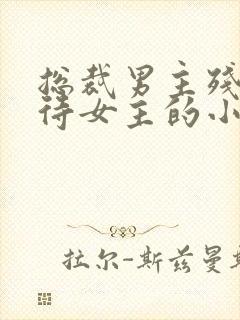 总裁男主残
待女主的小
拉尔-斯兹曼